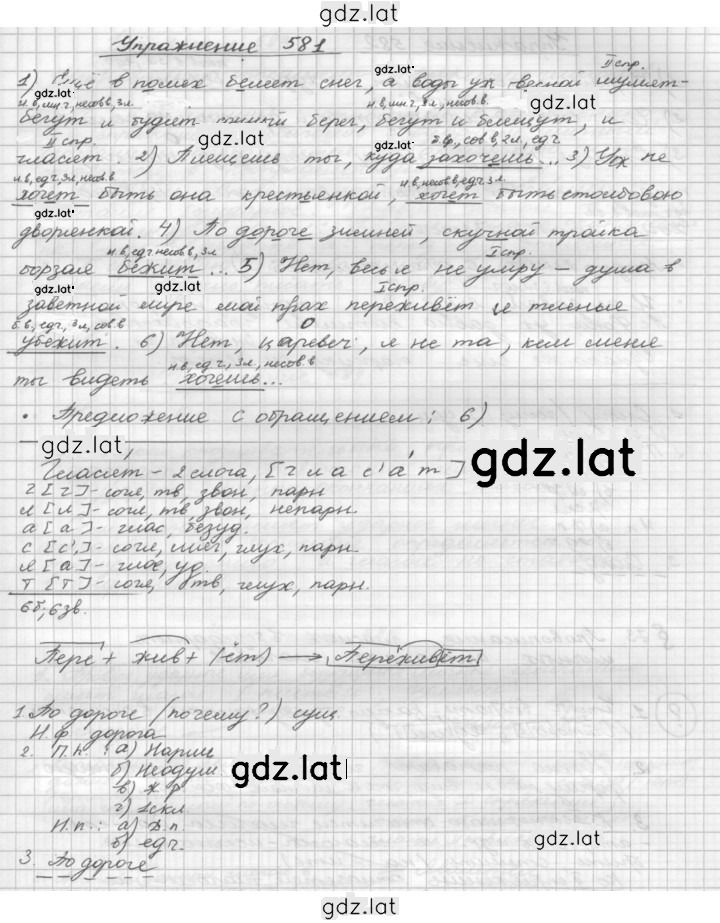 gdz.lat
Упражнение 581
II спр.
1) Ещё в полях белеет снег, а воды уж весной шумят-
gdz.lat gdz.lat
н.в, мн.ч, несов.в, 3л. н.в, мн.ч, 3л, несов.в.
gdz.lat gdz.lat
бегут и будят сонный берег, бегут и блещут, и
gdz.lat
II спр. б.в, сов.в, 2л, ед.ч
гласят. 2) Плещешь ты, куда захочешь... 3) Уж не
gdz.lat
н.в, ед.ч, 3л, несов.в н.в, несов.в, ед.ч 3л.
хочет быть она крестьянкой, хочет быть столбовою
gdz.lat
дворянкой. 4) По дороге зимней, скучной тройка
н.в, ед.ч несов.в, 3л I спр.
борзая бежит... 5) Нет, весь я не умру – душа в
gdz.lat gdz.lat I спр.
заветной лире мой прах переживёт и тленья
б.в, ед.ч, 3л, сов.в
убежит. 6) Нет, царевич, я не та, кем меня
gdz.lat
н.в, ед.ч, 3л, несов.в
ты видеть хочешь...
• Предложение с обращением: 6)
gdz.lat
gdz.lat
Гласят – 2 слога, [г л а с' а т]
г [г] - согл, тв, звон, парн
л [л] - согл, тв, звон, непарн.
а [а] - глас, безуд.
с [с'] - согл, мяг, глух, парн.
я [а] - глас, уд.
т [т] - согл, тв, глух, парн.
6б, 6зв.
Пере + жив + (ёт) → Переживёт
1. По дороге (почему?) сущ.
Н.ф. дорога
2. П.п.: а) Нариц
б) Неодуш
gdz.lat
в) ж.р
г) 1скл.
Н.п.: а) Д.п.
б) ед.ч.
gdz.lat
3. По дороге
gdz.lat